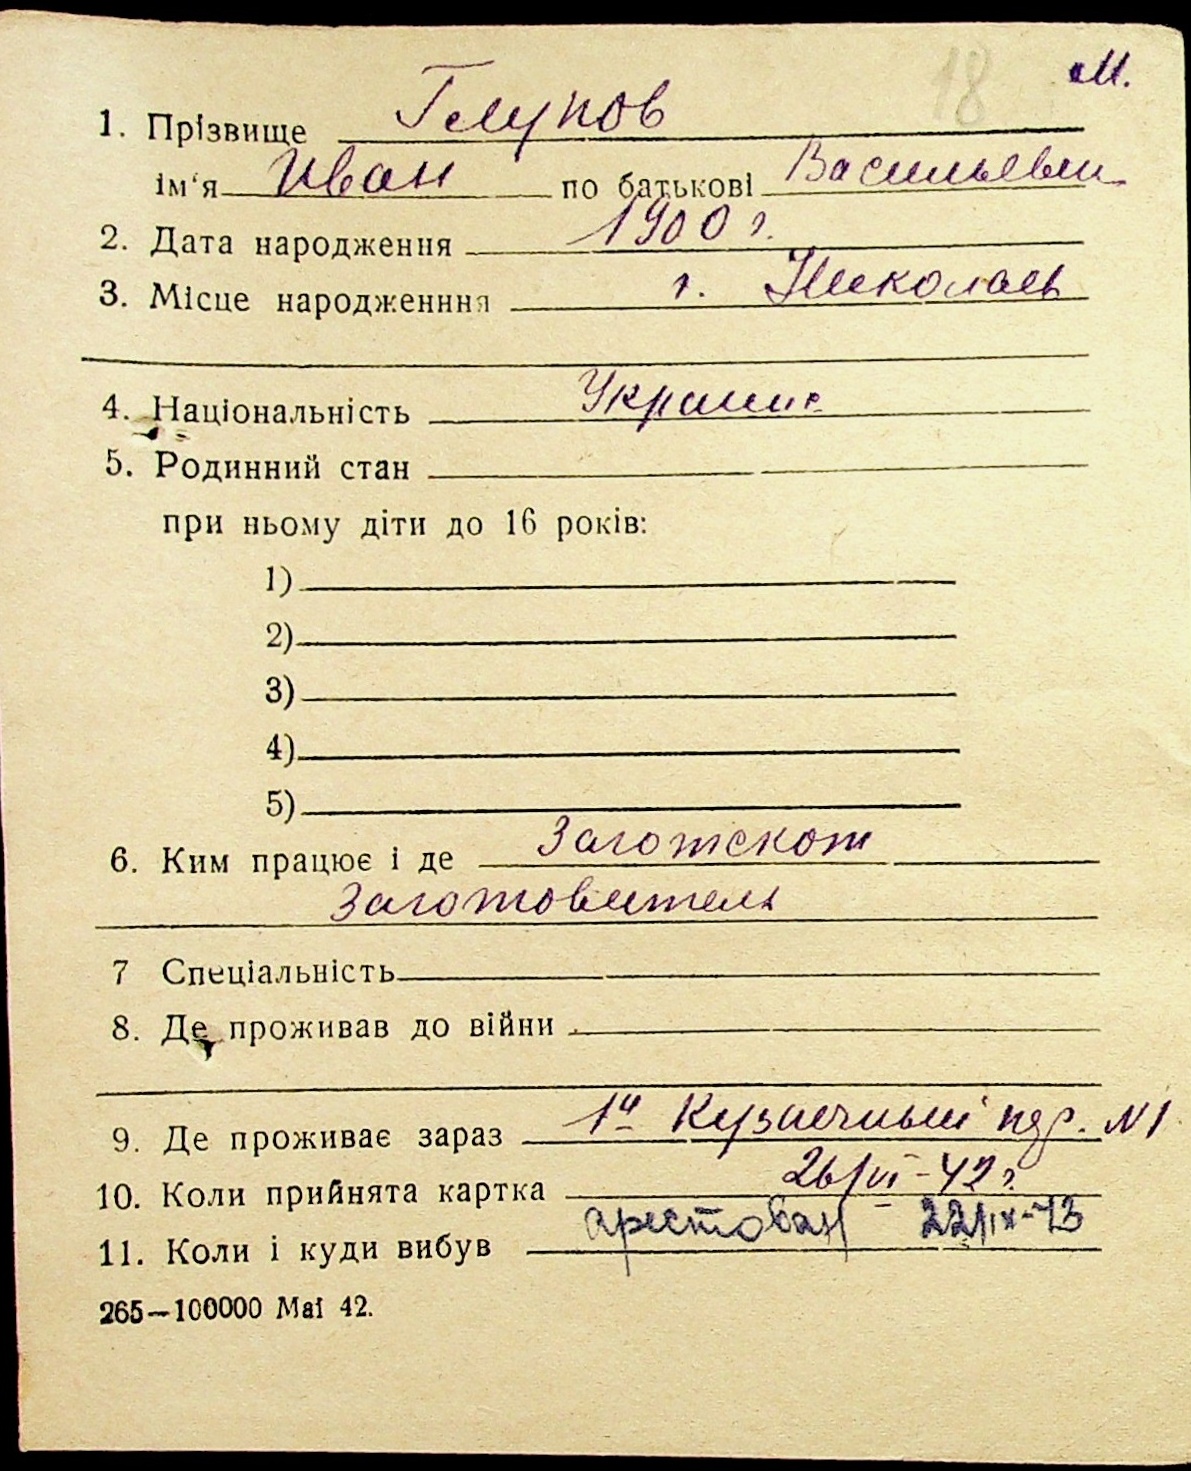 18 м.
1. Прізвище Глупов
ім‘я Иван по батькові Васильевич
2. Дата народження 1900 г.
3. Місце народженння г. Николаев
4. Національність Украинец
5. Родинний стан
при ньому діти до 16 років:
1)
2)
3)
4)
5)
6. Ким працює і де Заготскот
Заготовитель
7 Спеціальність
8. Де проживав до війни
9. Де проживає зараз 1й Кузнечный пер. N1
10. Коли прийнята картка 26/VI-42 г.
11. Коли і куди вибув арестован 22/IX-43
265—100000 Маі 42.